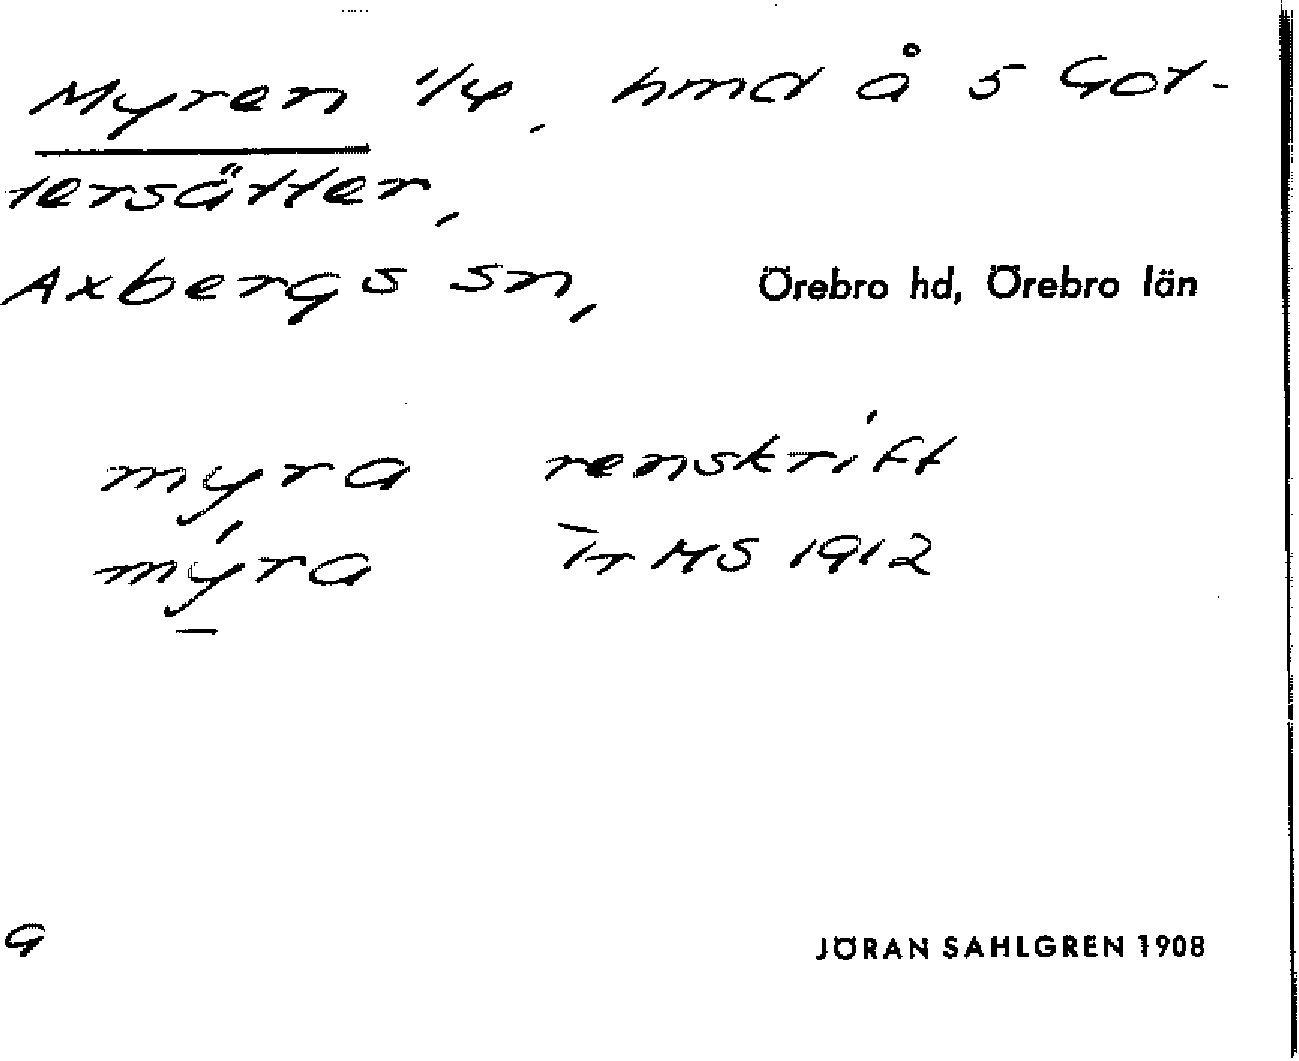 Myren 1/4, hmd å 5 Got-
tersätter,
Axbergs sn, Örebro hd, Örebro län
myra renskrift
mýra Ir MS 1912
G JÖRAN SAHLGREN 1908